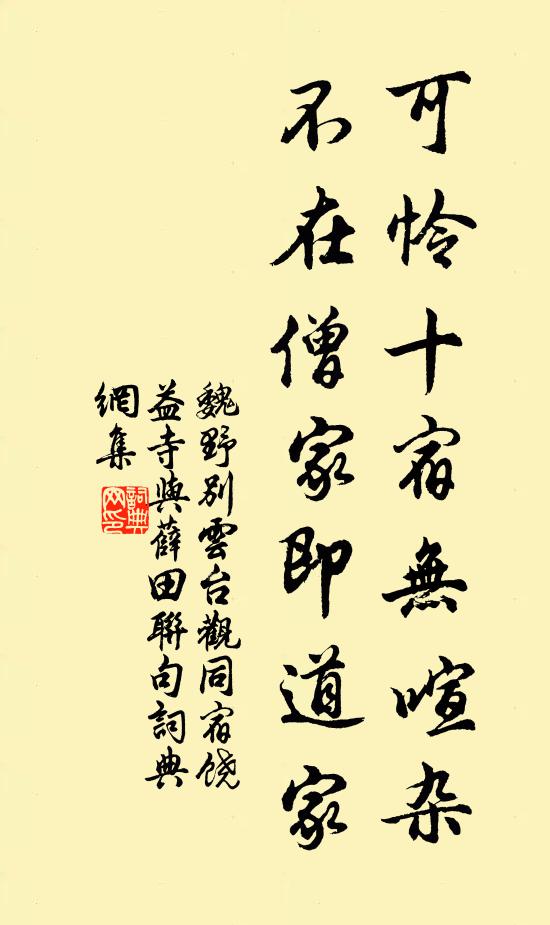 可怜十宿無喧杂
不在僧家即道家
魏野别雲台觀同宿饶
益寺與薛田聯句詞典
網集
詞典网印